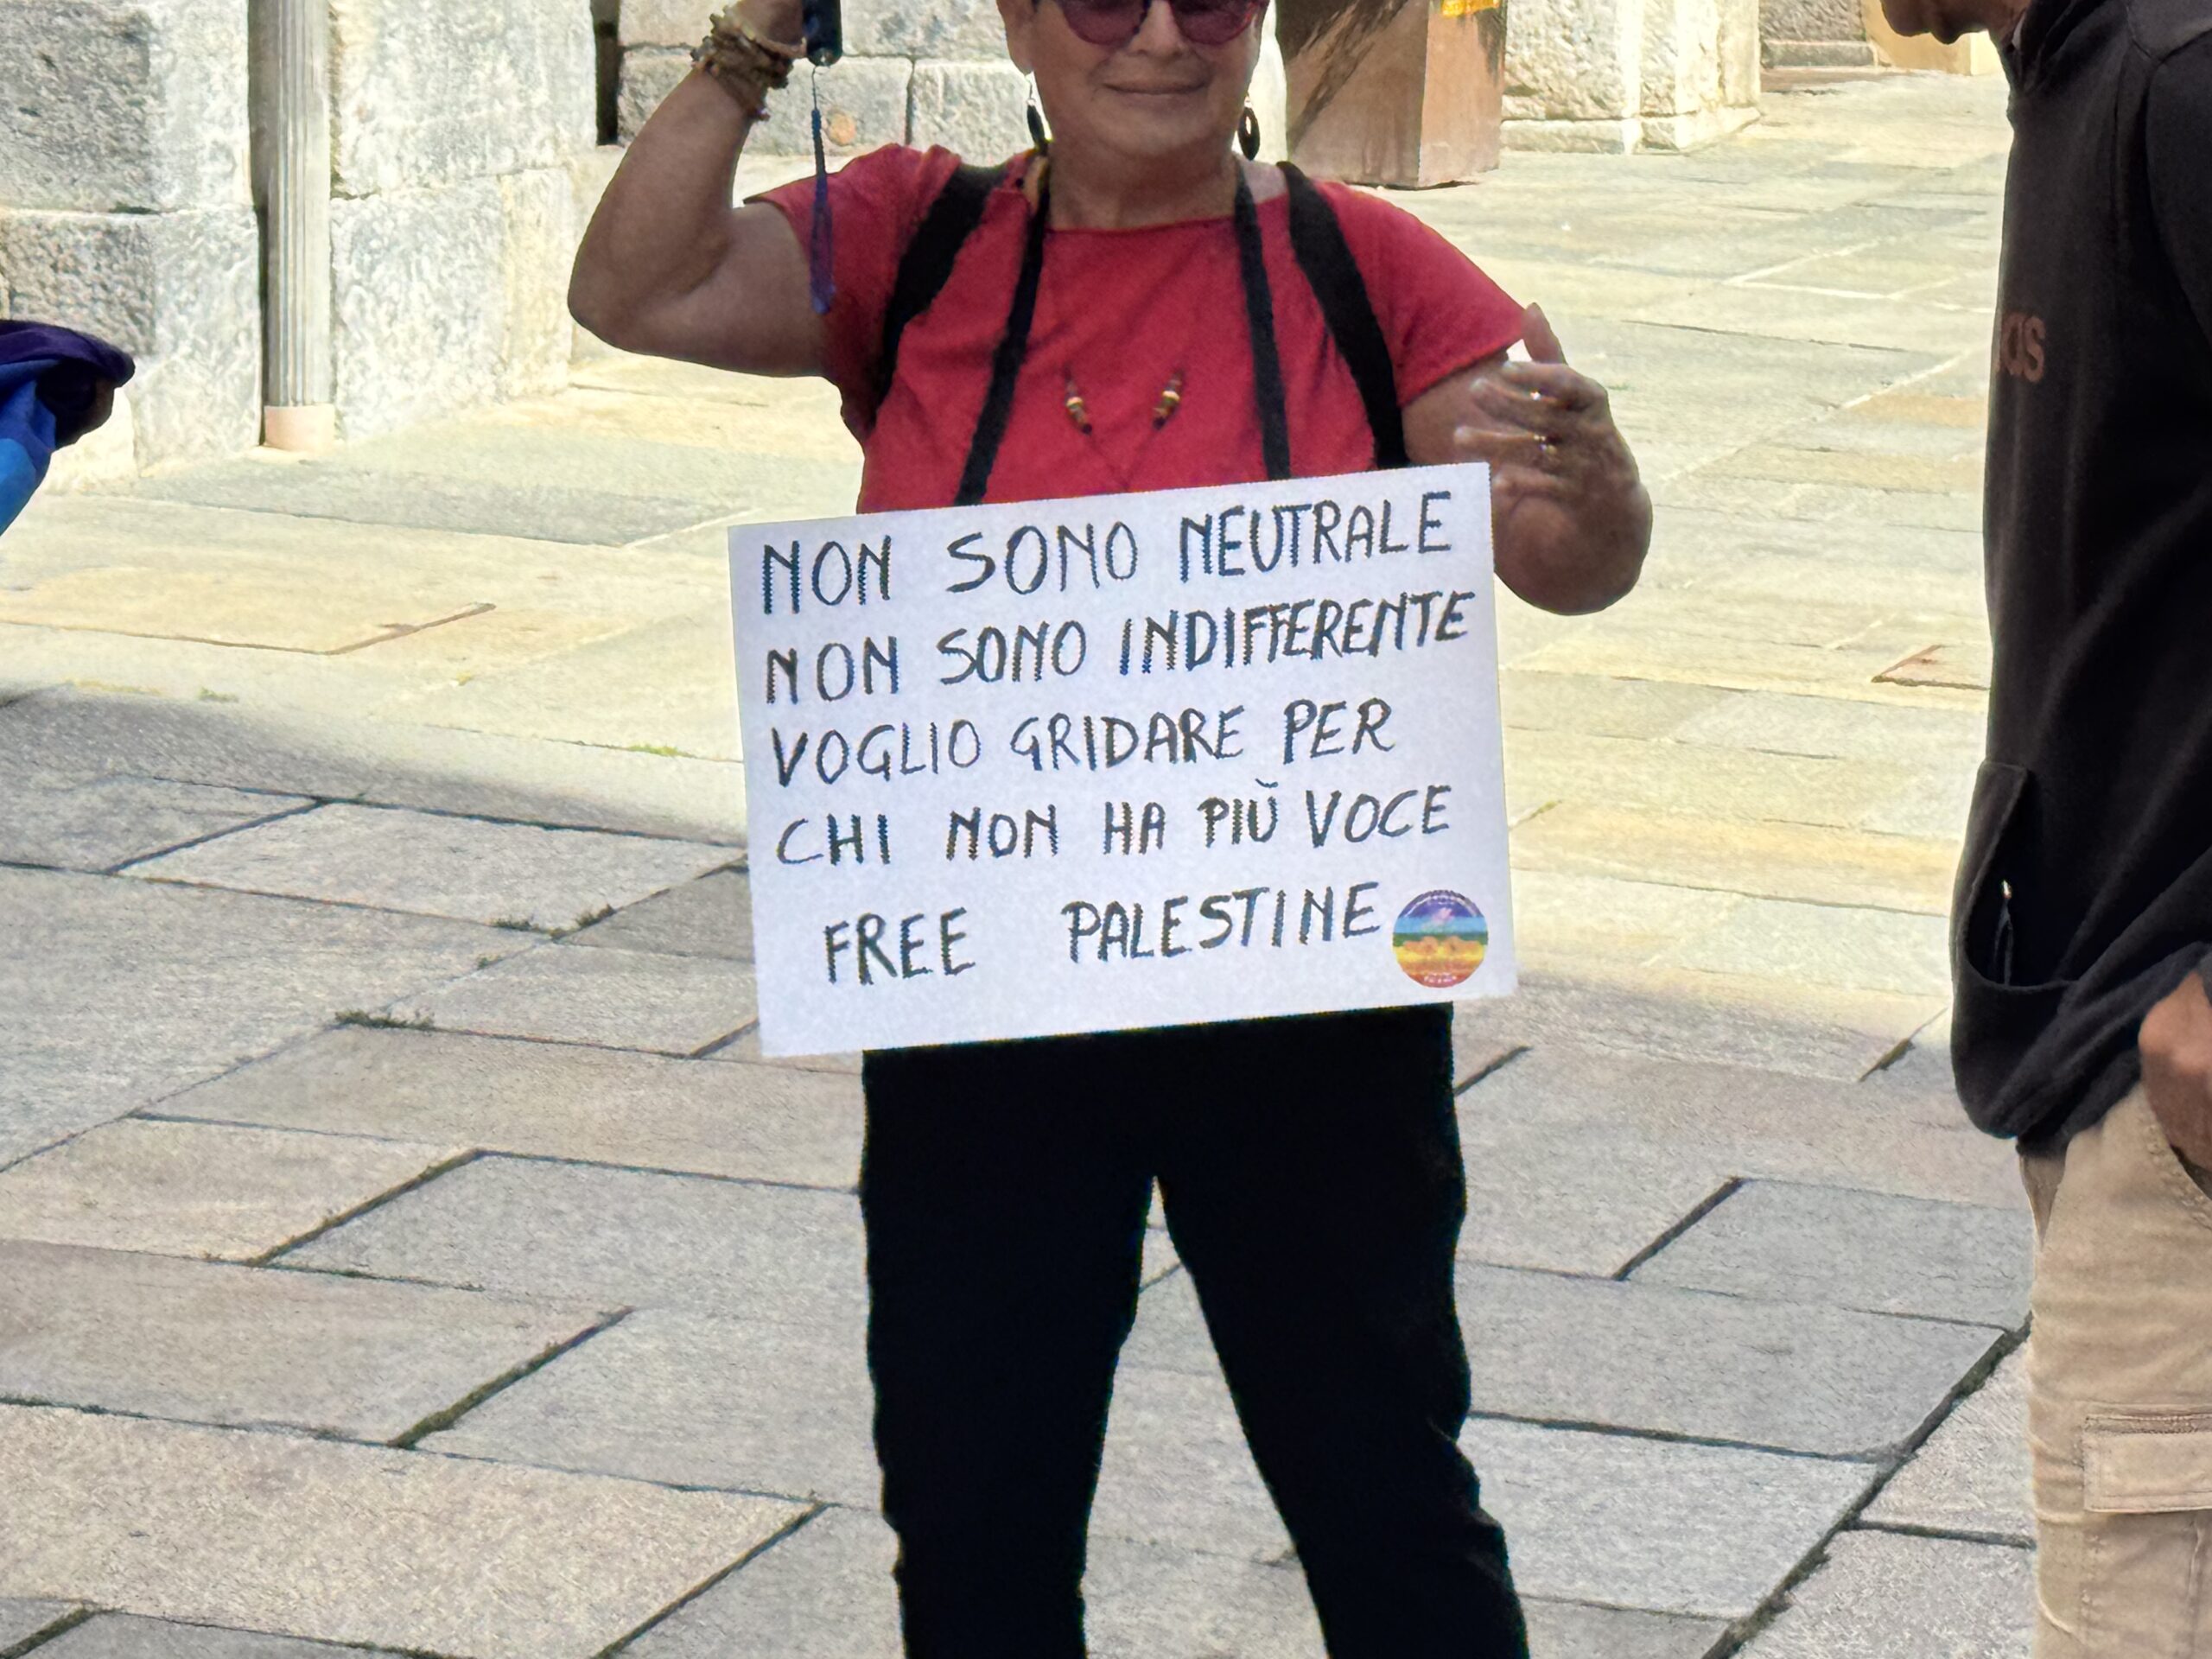 NON SONO NEUTRALE
NON SONO INDIFFERENTE
VOGLIO GRIDARE PER
CHI NON HA PIÙ VOCE
FREE PALESTINE